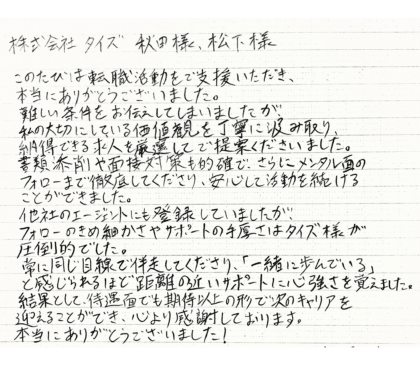 株式会社タイズ 秋田様、松下様
このたびは転職活動をご支援いただき、
本当にありがとうございました。
難しい条件をお伝えしてしまいましたが、
私の大切にしている価値観を丁寧に汲み取り、
納得できる求人を厳選してご提案くださいました。
書類添削や面接対策も的確で、さらにメンタル面の
フォローまで徹底してくださり、安心して活動を続ける
ことができました。
他社のエージェントにも登録していましたが、
フォローのきめ細かさやサポートの手厚さはタイズ様が
圧倒的でした。
常に同じ目線で伴走してくださり、「一緒に歩んでいる」
と感じられるほど距離の近いサポートに心強さを覚えました。
結果として、待遇面でも期待以上の形で次のキャリアを
迎えることができ、心より感謝しております。
本当にありがとうございました!